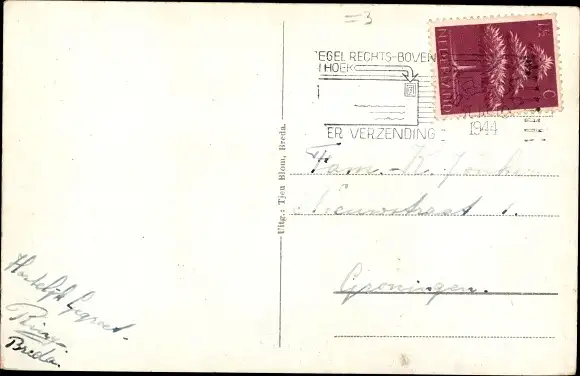 =3
EGEL RECHTS-BOVEN
HOEK
ER VERZENDING
1944
NEDERLAND
1½ C
Uitg.: Tjeu Blom, Breda.
Fam. K.
Nieuwstraat 1.
Groningen.
Hartelijk Gegroet
Breda.